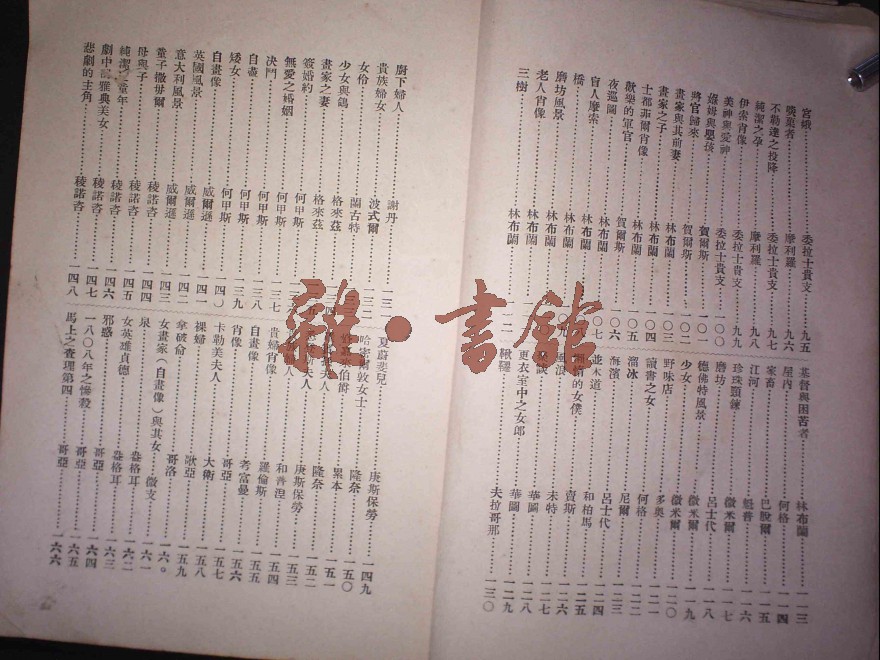 宮娥……委拉士貴支…九五
喫菓者……摩利羅…九六
不勒達之投降……委拉士貴支…九七
純潔之孕……摩利羅…九八
伊索肖像……委拉士貴支…九九
美神與愛神……委拉士貴支…一〇〇
孃姆與嬰孩……賀爾斯
將官歸來……賀爾斯…一〇二
畫家與其前妻……林布蘭…一〇三
畫家之子……林布蘭…一〇四
士都菲爾肖像……林布蘭…一〇五
歡樂的軍官……賀爾斯…一〇六
夜巡圖……林布蘭…一〇七
官人摩索……林布蘭
橋……林布蘭
磨坊風景……林布蘭
老人肖像……林布蘭
三樹……林布蘭…一一二
基督與困苦者……林布蘭…一一三
屋內……何格…一一四
家畜……巴脫爾…一一五
江河……魁普…一一六
珍珠頸鍊……微米爾…一一七
磨坊……呂士代…一一八
德佛特風景……微米爾…一一九
少女……微米爾…一二〇
野味店……多奧…一二一
讀書之女……何格…一二二
溜冰……尼爾…一二三
海濱……呂士代…一二四
並木道……和柏馬…一二五
的女僕……賣斯…一二六
未特…一二七
華圖…一二八
更衣室中之女郎……華圖…一二九
鞦韆……夫拉哥那…一三〇
廚下婦人……謝丹…一三一
貴族婦女……波式爾…一三二
女伶……蘭古特
少女與鴿……格來茲
畫家之妻……格來茲
簽婚約……何甲斯
無愛之婚姻……何甲斯…一三七
決鬥……何甲斯…一三八
自盡……何甲斯…一三九
矮女……何甲斯…一四〇
自畫像……一四一
英國風景……威爾遜…一四二
意大利風景……威爾遜…一四三
童子撒母爾……稜諾杏…一四四
母與子……稜諾杏…一四五
純潔之童年……稜諾杏…一四六
劇中雅典美女……稜諾杏…一四七
悲劇的主角……稜諾杏…一四八
夏蔚斐兒……庚斯保勞…一四九
哈密爾敦女士……隆奈…一五〇
伯爵……累本…一五一
夫人……隆奈…一五二
庚斯保勞…一五三
和普涅…一五四
貴婦肖像……羅倫斯…一五五
自畫像……考富曼…一五六
肖像……哥亞…一五七
卡勒美夫人……大衛…一五八
裸婦……一五九
拿破侖……哥洛…一六〇
女畫家(自畫像)與其女……微支…一六一
泉……盎格耳…一六二
女英雄貞德……盎格耳…一六三
邪惑……哥亞…一六四
一八〇八年之慘殺……哥亞…一六五
馬上之查理第四……哥亞…一六六
雜·書館